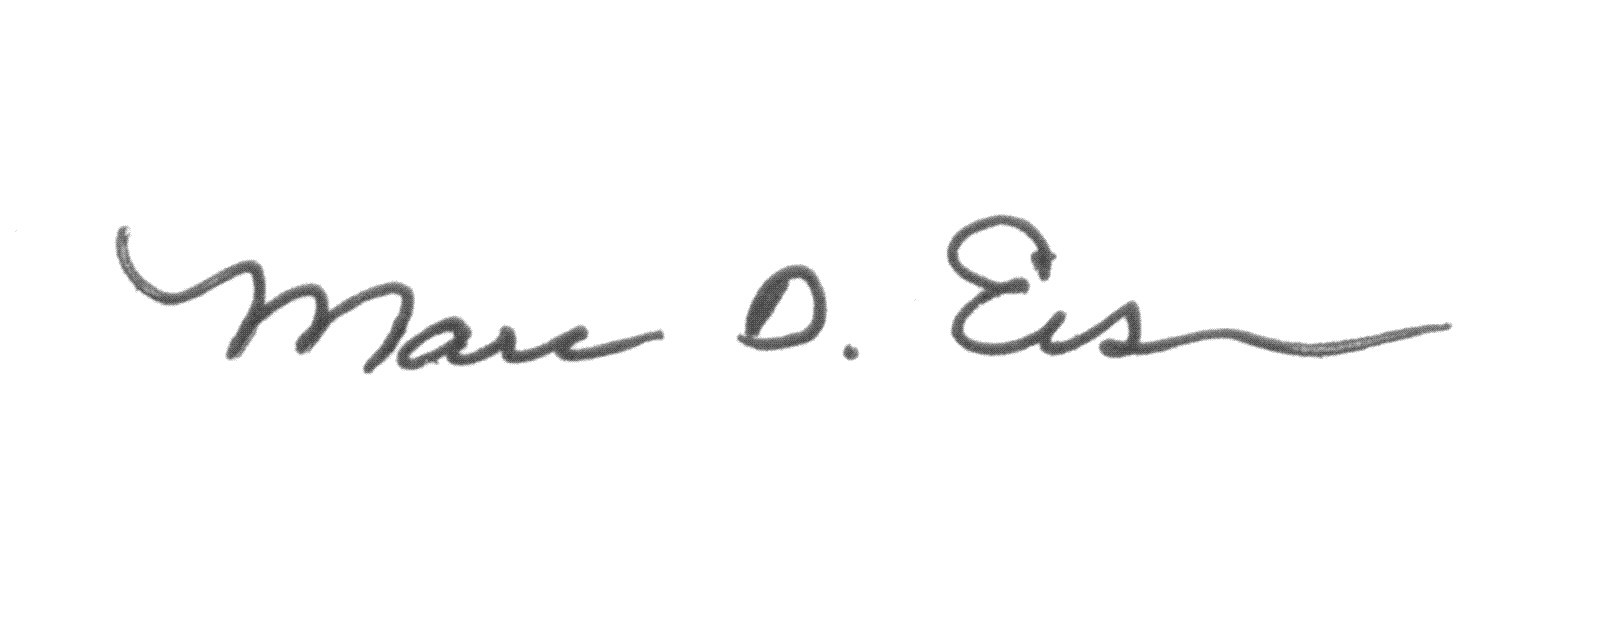 Marc D. Eis